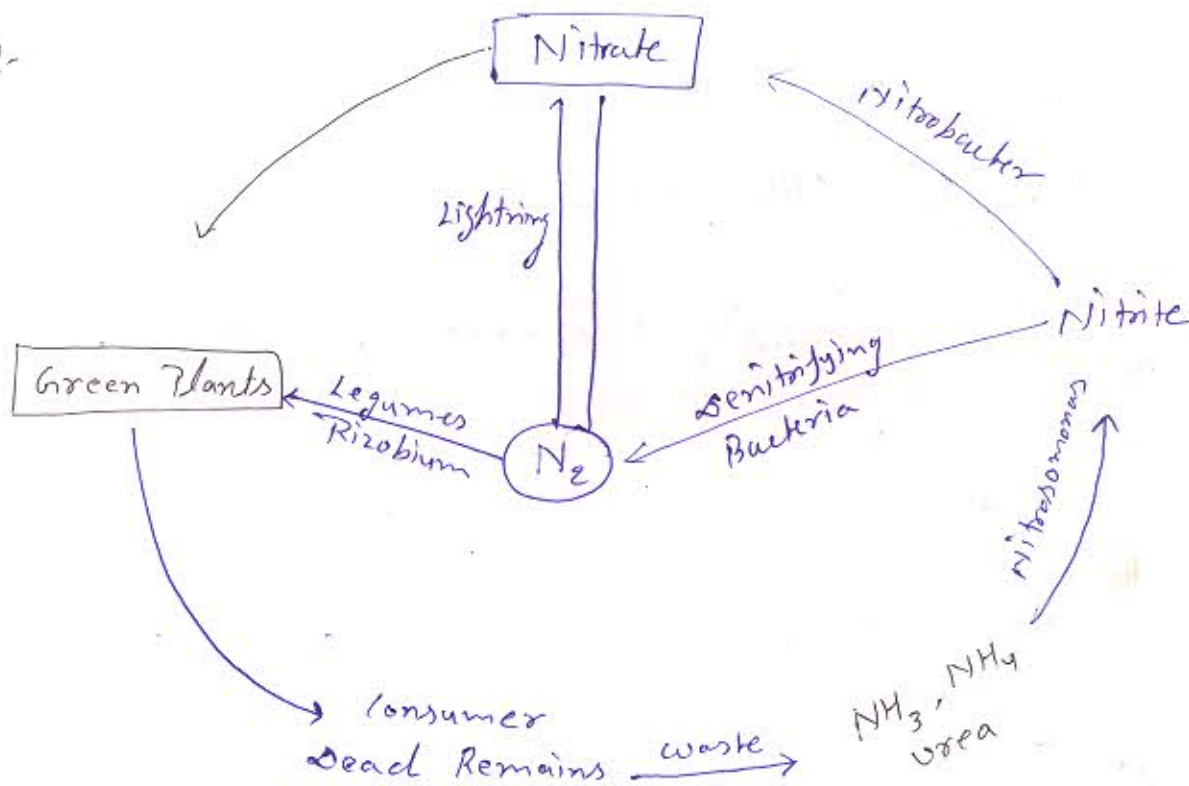 Nitrate
Nitrobacter
Lightning
Nitrite
Green Plants
Legumes
Rizobium
N2
Denitrifying
Bacteria
Nitrosomonas
Consumer
Dead Remains
waste
NH3, NH4
urea